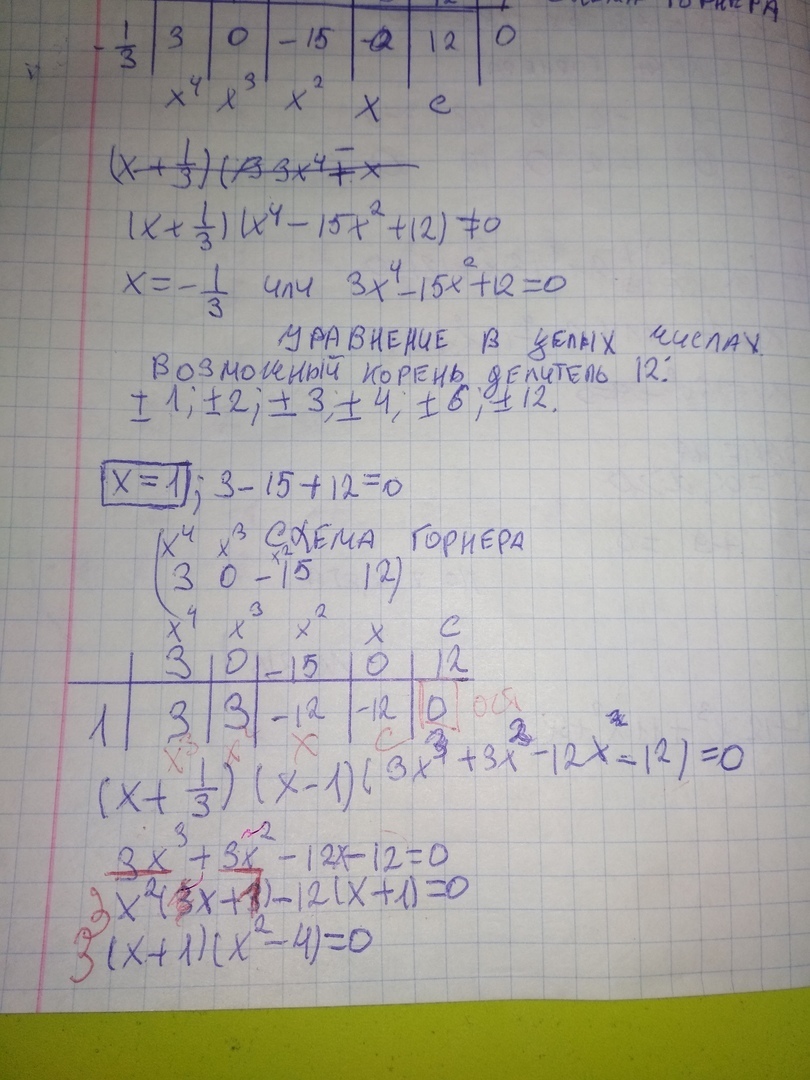 СХЕМА ГОРНЕРА
-1/3 | 3 | 0 | -15 | 0 | 12 | 0
x⁴ x³ x² x c
(x + 1/3)(3x⁴ + x
(x + 1/3)(x⁴ - 15x² + 12) = 0
x = -1/3 или 3x⁴ - 15x² + 12 = 0
УРАВНЕНИЕ В ЦЕЛЫХ ЧИСЛАХ.
ВОЗМОЖНЫЙ КОРЕНЬ ДЕЛИТЕЛЬ 12:
± 1; ±2; ± 3; ± 4; ± 6; ± 12.
x = 1; 3 - 15 + 12 = 0
СХЕМА ГОРНЕРА
x⁴ x³ x²
(3 0 -15 12)
x⁴ x³ x² x c
3 | 0 | -15 | 0 | 12
1 | 3 | 3 | -12 | -12 | 0 ост
x³ x² x c
(x + 1/3)(x - 1)(3x³ + 3x² - 12x - 12) = 0
3x³ + 3x² - 12x - 12 = 0
3x²(x + 1) - 12(x + 1) = 0
3(x + 1)(x² - 4) = 0